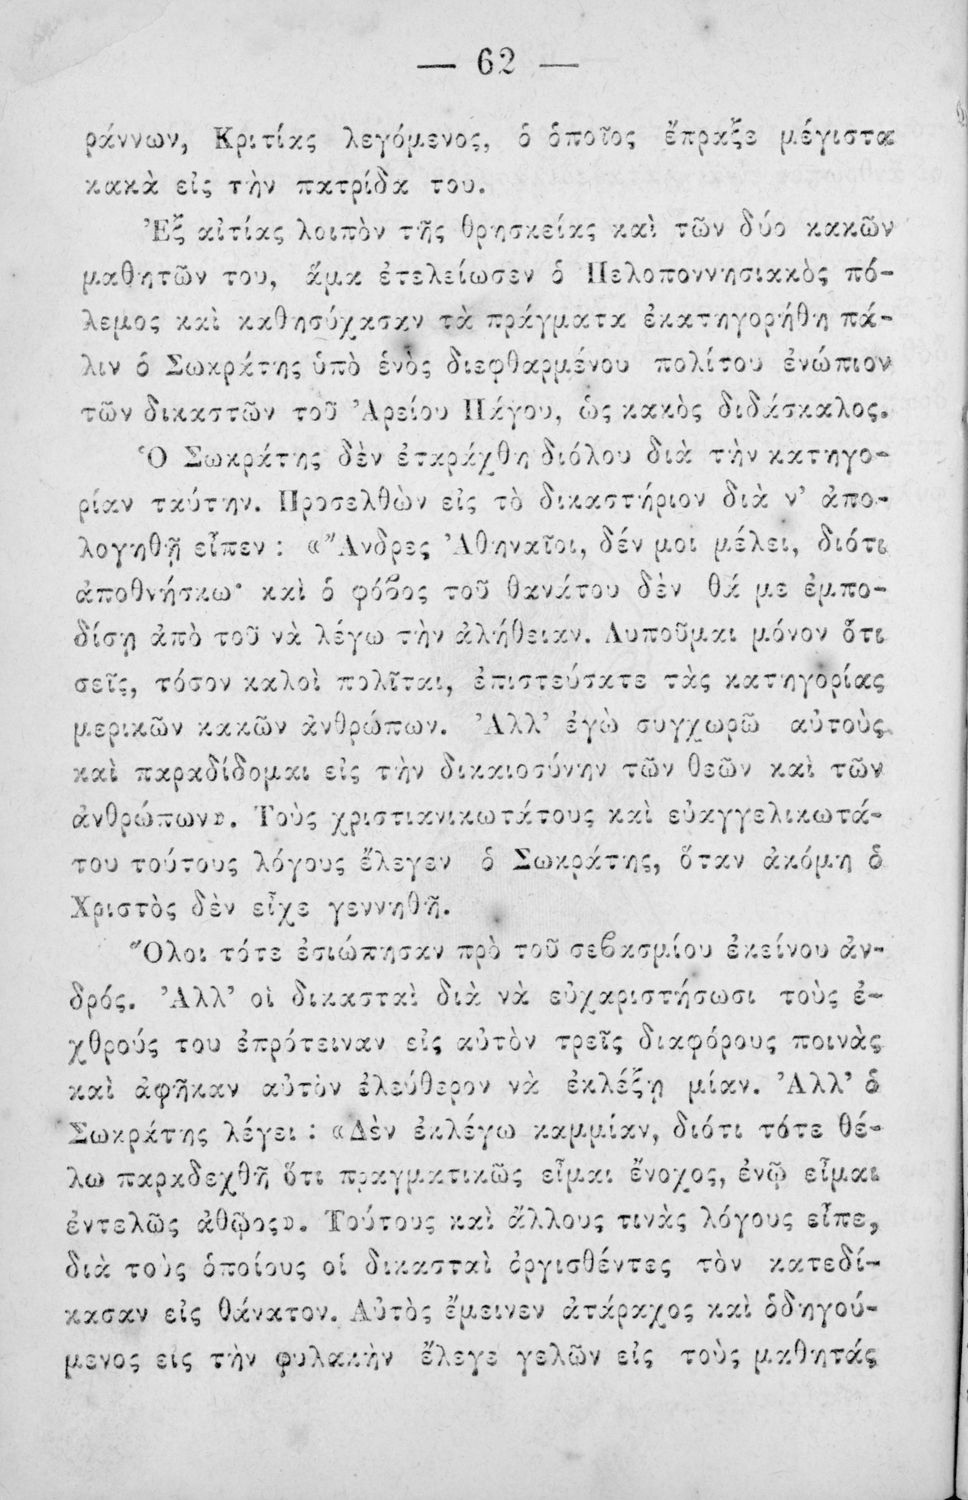 — 62 —
ράννων, Κριτίας λεγόμενος, ὁ ὁποῖος ἔπραξε μέγιστα
κακὰ εἰς τὴν πατρίδα του.
Ἐξ αἰτίας λοιπὸν τῆς θρησκείας καὶ τῶν δύο κακῶν
μαθητῶν του, ἅμα ἐτελείωσεν ὁ Πελοποννησιακὸς πό-
λεμος καὶ καθησύχασαν τὰ πράγματα ἐκατηγορήθη πά-
λιν ὁ Σωκράτης ὑπὸ ἑνὸς διεφθαρμένου πολίτου ἐνώπιον
τῶν δικαστῶν τοῦ Ἀρείου Πάγου, ὡς κακὸς διδάσκαλος.
Ὁ Σωκράτης δὲν ἐταράχθη διόλου διὰ τὴν κατηγο-
ρίαν ταύτην. Προσελθὼν εἰς τὸ δικαστήριον διὰ ν' ἀπο-
λογηθῇ εἶπεν : «Ἄνδρες Ἀθηναῖοι, δέν μοι μέλει, διότι
ἀποθνήσκω· καὶ ὁ φόβος τοῦ θανάτου δὲν θά με ἐμπο-
δίσῃ ἀπὸ τοῦ νὰ λέγω τὴν ἀλήθειαν. Λυποῦμαι μόνον ὅτι
σεῖς, τόσον καλοὶ πολῖται, ἐπιστεύσατε τὰς κατηγορίας
μερικῶν κακῶν ἀνθρώπων. Ἀλλ' ἐγὼ συγχωρῶ αὐτοὺς
καὶ παραδίδομαι εἰς τὴν δικαιοσύνην τῶν θεῶν καὶ τῶν
ἀνθρώπων». Τοὺς χριστιανικωτάτους καὶ εὐαγγελικωτά-
του τούτους λόγους ἔλεγεν ὁ Σωκράτης, ὅταν ἀκόμη ὁ
Χριστὸς δὲν εἶχε γεννηθῆ.
Ὅλοι τότε ἐσιώπησαν πρὸ τοῦ σεβασμίου ἐκείνου ἀν-
δρός. Ἀλλ' οἱ δικασταὶ διὰ νὰ εὐχαριστήσωσι τοὺς ἐ-
χθρούς του ἐπρότειναν εἰς αὐτὸν τρεῖς διαφόρους ποινὰς
καὶ ἀφῆκαν αὐτὸν ἐλεύθερον νὰ ἐκλέξῃ μίαν. Ἀλλ' ὁ
Σωκράτης λέγει : «Δὲν ἐκλέγω καμμίαν, διότι τότε θέ-
λω παραδεχθῆ ὅτι πραγματικῶς εἶμαι ἔνοχος, ἐνῷ εἶμαι
ἐντελῶς ἀθῷος». Τούτους καὶ ἄλλους τινὰς λόγους εἶπε,
διὰ τοὺς ὁποίους οἱ δικασταὶ ὀργισθέντες τὸν κατεδί-
κασαν εἰς θάνατον. Αὐτὸς ἔμεινεν ἀτάραχος καὶ ὁδηγού-
μενος εἰς τὴν φυλακὴν ἔλεγε γελῶν εἰς τοὺς μαθητάς